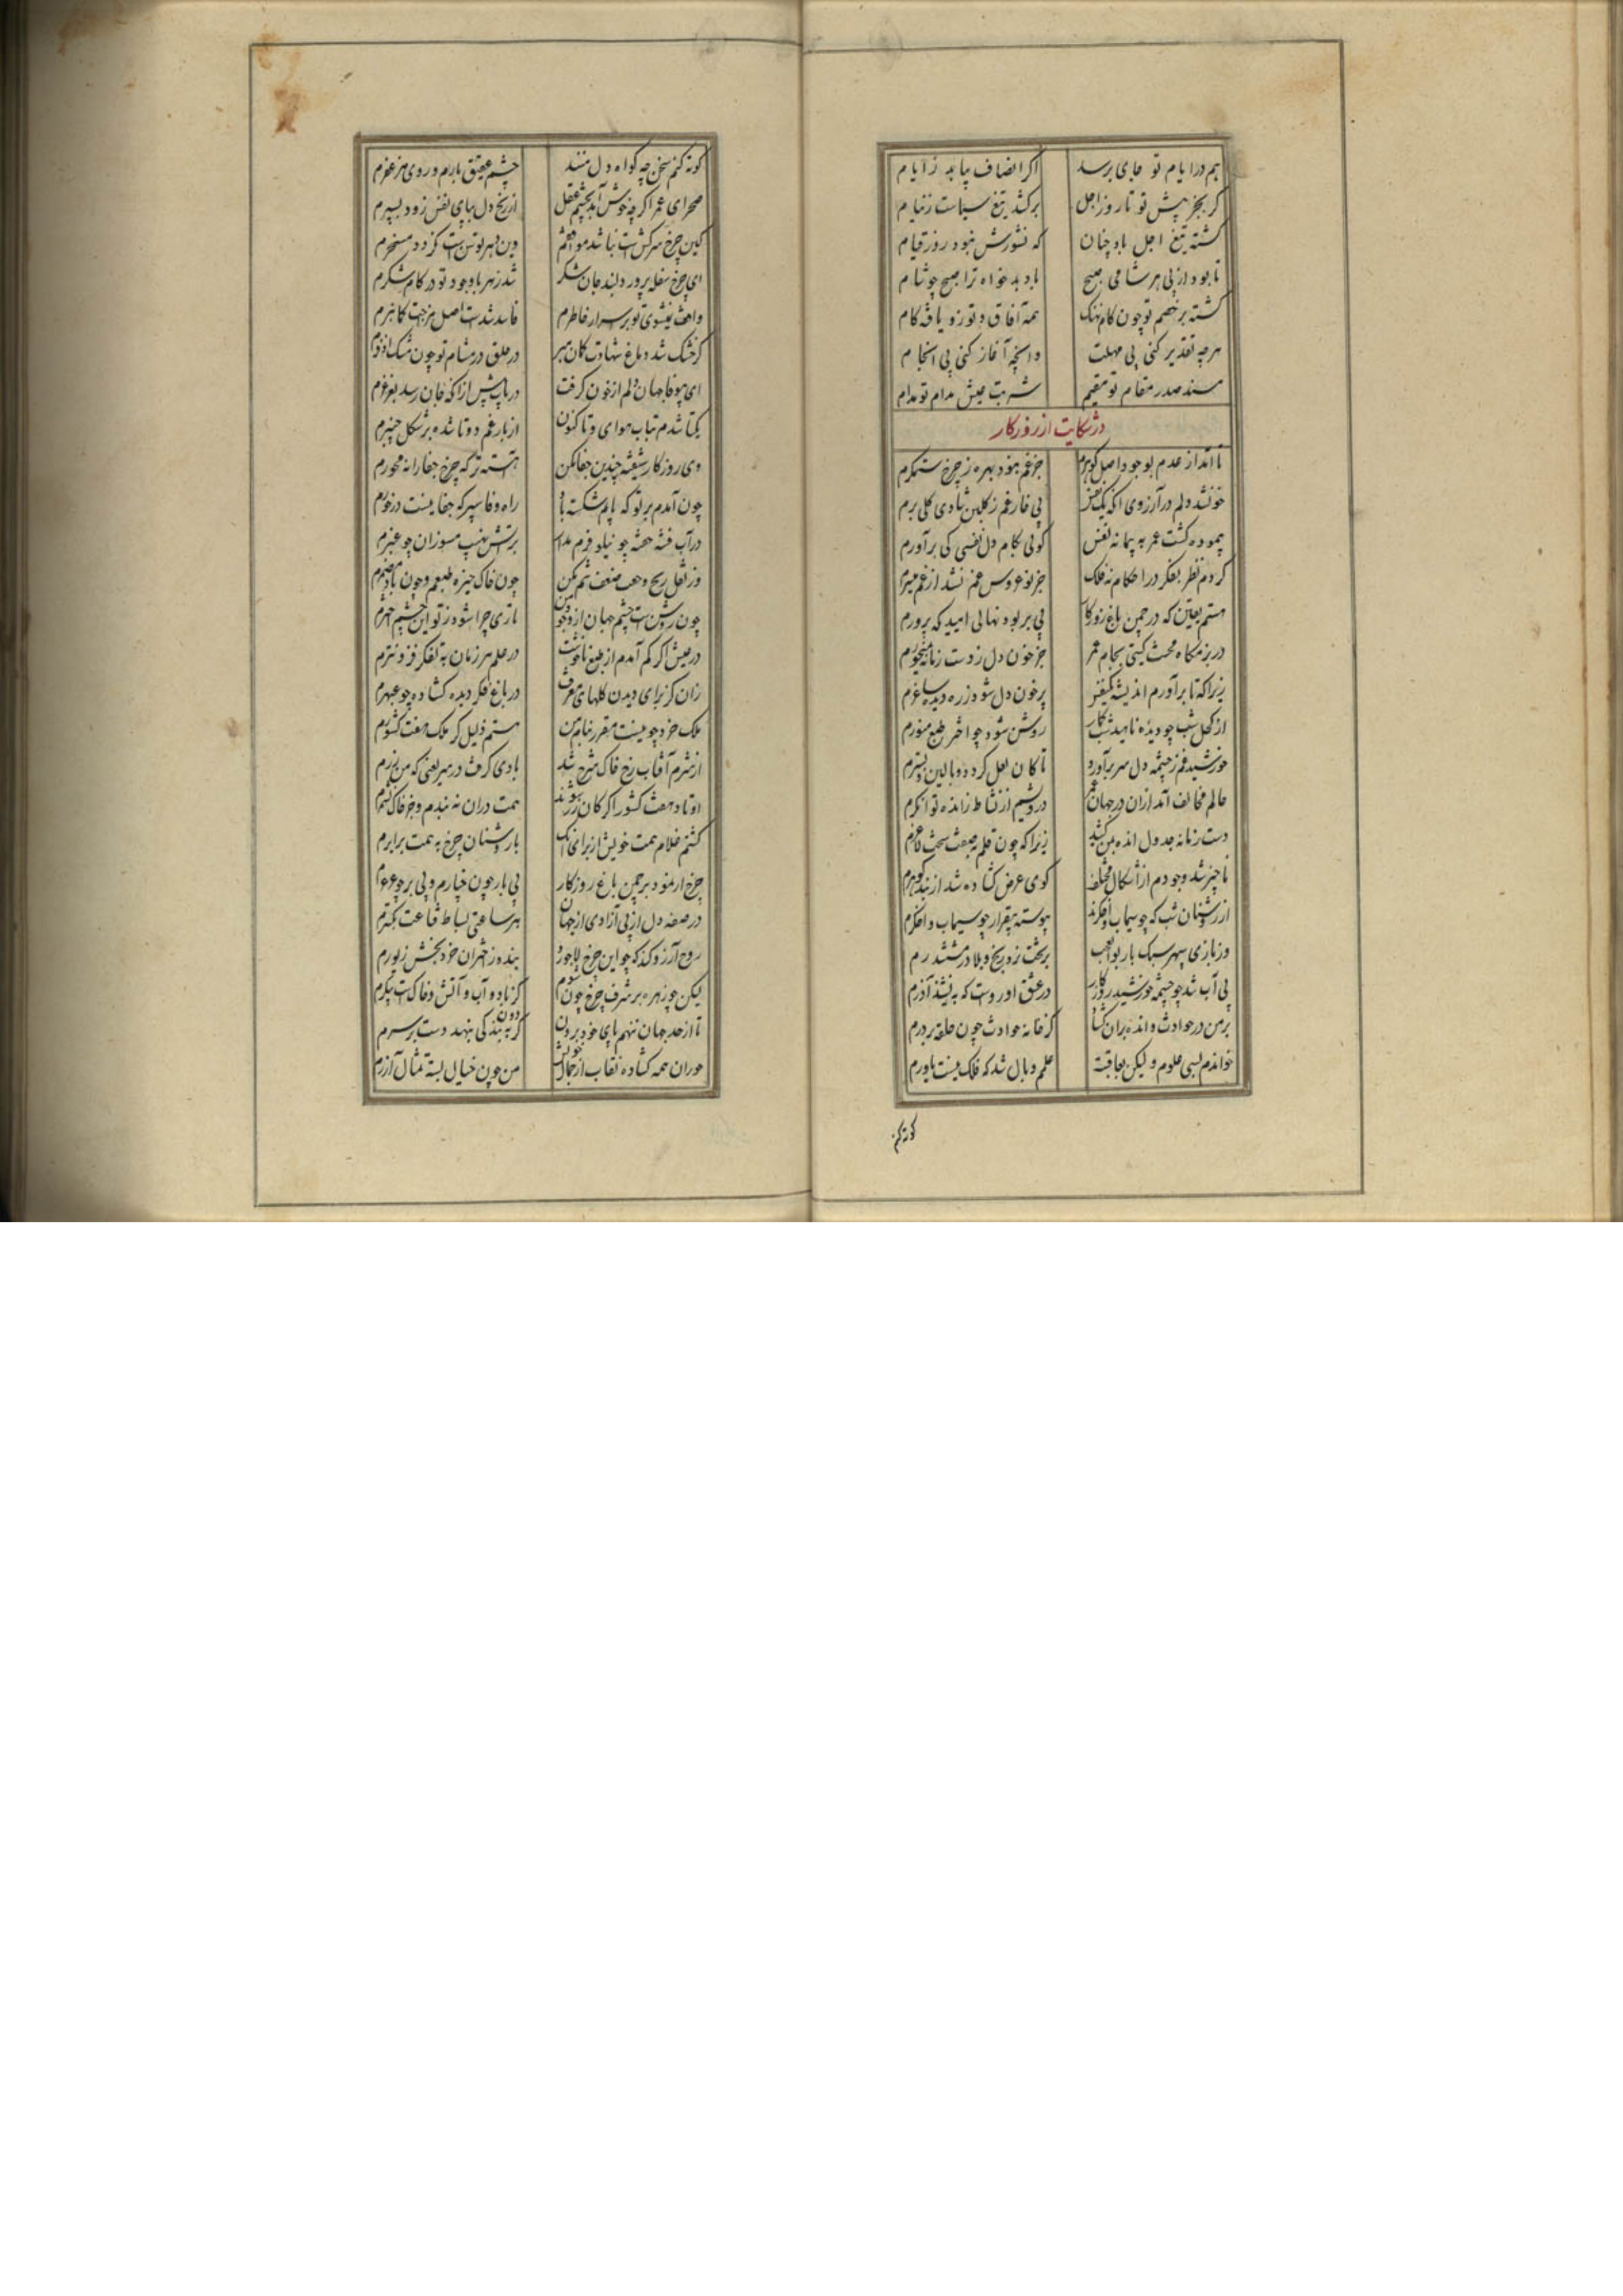 هم در ایام تو جای برسد اکر انصاف بیابد ز ایام
کر بجز پیش تو تا روز اجل برکشد تیغ سیاست ز نیام
کشته تیغ اجل باد چنان که نشورش نبود روز قیام
تا بود از پی هر شامی صبح باد بدخواه ترا صبح چو شام
کشته بر خصم تو چون کام نهنک همه آفاق و تو زو یافه کام
هر چه تقدیر کنی بی مهلت وانچه آغاز کنی بی انجام
مسند صدر مقام تو مقیم شربت عیش مدام تو مدام
در شکایت از روزکار
تا آمد از عدم بوجود اصل کوهرم جز غم نبود بهره ز چرخ ستمکرم
خون شد دلم در آرزوی آنکه یک نفس بی خار غم ز کلبن شادی کلی برم
پیموده کشت عمر به پیمانه نفس کوئی بکام دل نفسی کی برآورم
کردم نظر بفکر در احکام نه فلک جز نو عروس غم نشد از غم میسرم
هستم یقین که در چمن باغ روزکار بی بر بود نهالی امید که پرورم
در بزمکاه محنت کیتی بجام عمر جز خون دل ز دست زمانه نمیخورم
زیرا که تا برآورم اندیشه یکنفس پر خون دل شود ز ره دیده ساغرم
از کحل شب چو دیده ناهید شب کمار روشن شود چو اختر طبع منورم
خورشید غم ز چشمه دل سر برآورد تا کان لعل کردد و بالین و بسترم
عالم مخالف آمد ازان در جهان غم درویشم از نشاط ز انده توانکرم
دست زمانه جدول انده بمن کشید زیرا که چون قلم بصفت سخت لاغرم
ناچیز شد وجودم از اشکال مختلف کوی عرض کشاده شد از بند کوهرم
از روشنان شب که چو سیماب و اخکرند پیوسته بیقرار چو سیماب و اخکرم
وز بازی سپهر سبک بار بوالعجب بر تخت نرد رنج و بلا در مششدرم
بی آب شد چو چشمه خورشید روزکار در عشق او رواست که بنشیند آذرم
بر من در حوادث و انده بران کشاد کز خانه حوادث چون حلقه بر درم
خواندم بسی علوم و لیکن بعاقبت علمم وبال شد که فلک نیست یاورم
کوته کنم
کوته کنم سخن چه کواه دل منند چشم عقیق بارم و روی مزعفرم
صحرای عمر اکر چه خوش آمد بچشم عقل از رنج دل بپای نفس زود بسپرم
کین چرخ سرکش است نباشد موافقم وین دهر توسن است نکردد مسخرم
ای چرخ سفله پرور دلبند جان شکر شد زهر با وجود تو در کام شکرم
واهت نشوی تو بر اسرار خاطرم فاسد شدست اصل مزاجت کمان برم
کر خشک شد دماغ نهادت کمان مبر در حلق در مشام تو چون مشک اذفرم
ای بیوفا جهان دلم از خون کرفت دریاب پیش از آنکه جان رسد بغرغرم
یکتا شدم بتاب هوای و تا کنون از بار غم دوتا شده بر شکل چنبرم
وی روزکار شیفته چندین جفا مکن آهسته تر که چرخ جفا را نه محورم
چون آمدم بر تو که پایم شکسته باد راه وفا سپر که جفا نیست در خورم
در آب فتنه خفته چو نیلوفرم مدار بر آتش نهیب مسوزان چو عنبرم
وز ثقل رنج و خفت ضعفم تهم مکن چون خاک خیره طبعم و چون باد مضمرم
چون روشن است چشم جهان از وجود من تاری چرا شود ز تو این چشم اخترم
در عیش اکر کم آمدم از طبع ناخوشت در علم هر زمان به تفکر فزونترم
زان کز برای دیدن کلهای معرفت در باغ فکر دیده کشاده چو عبهرم
ملک خرد چو نیست مقرر بنام من هستم ذلیل کر ملک هفت کشورم
از شرم آفتاب رخ خاک سرخ شد بادی کرفت در سر یعنی که من زرم
اوتاد هفت کشور اکر کان زر شوند همت دران نه بندم و جز خاک نشمرم
کشتم غلام همت خویش از برای آنک با روشنان چرخ به همت برابرم
چرخ ار نمود بر چمن باغ روزکار بی بار چون چنارم و بی بر چو عرعرم
در صفه دل از پی آزادی از جهان هر ساعتی بساط قناعت بکسترم
روح آرزو کند که چو این چرخ لاجورد بندد ز اختران خرد بخش زیورم
لیکن چو زهره بر شرف چرخ چون شوم کز باد و آب و آتش و خاک است پیکرم
تا از حد جهان ننهم پای خود برون کر دون به بندکی بنهد دست بر سرم
حوران همه کشاده نقاب از جمال خویش من چون خیال بسته تمثال آزرم